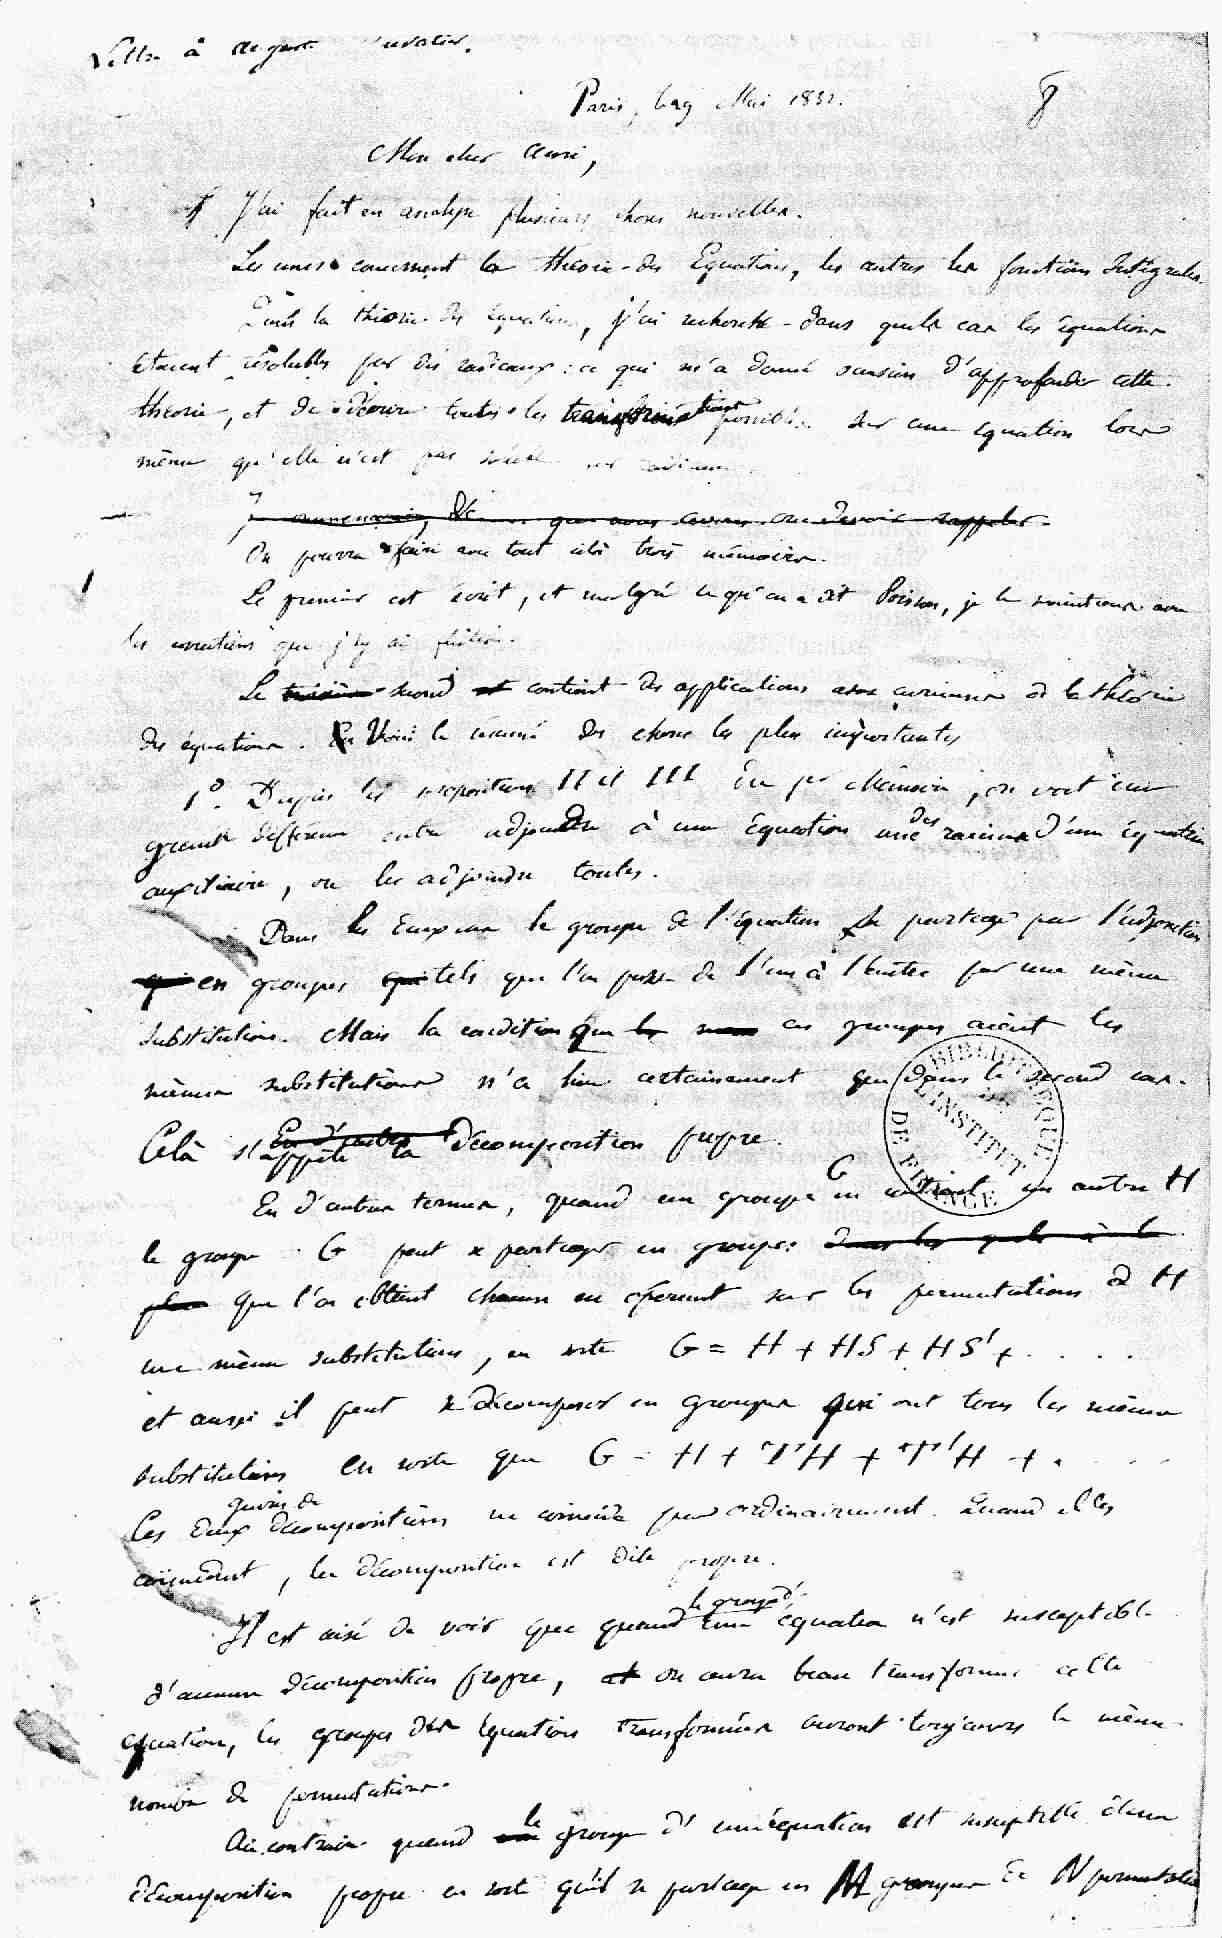 Lettre à Auguste Chevalier.
Paris, le 29 Mai 1832.
8
Mon cher Ami,
J'ai fait en analyse plusieurs choses nouvelles.
Les unes concernent la théorie des Equations, les autres les fonctions Intégrales.
Dans la théorie des équations, j'ai recherché dans quels cas les équations
étaient résolubles par des radicaux : ce qui m'a donné occasion d'approfondir cette
théorie, et de décrire toutes les transformations possibles sur une équation lors
même qu'elle n'est pas soluble par radicaux.
que nous avons cru devoir rappeler.
On pourra faire avec tout cela trois mémoires.
Le premier est écrit, et malgré ce qu'en a dit Poisson, je le maintiens avec
les corrections que j'y ai faites.
Le second contient des applications assez curieuses de la théorie
des équations. Voici le résumé des choses les plus importantes
1º. D'après les propositions II et III du 1er Mémoire, on voit une
grande différence entre adjoindre à une équation une des racines d'une équation
auxiliaire, ou les adjoindre toutes.
Dans les deux cas le groupe de l'équation se partage par l'adjonction
en groupes tels que l'on passe de l'un à l'autre par une même
substitution. Mais la condition que ces groupes aient les
mêmes substitutions n'a lieu certainement que dans le second cas.
Celà s'appèle la décomposition propre.
En d'autres termes, quand un groupe G en contient un autre H
le groupe G peut se partager en groupes
que l'on obtient chacun en opérant sur les permutations de H
une même substitution, en sorte G = H + HS + HS' + . . . .
et aussi il peut se décomposer en groupes qui ont tous les mêmes
substitutions en sorte que G = H + TH + T'H + . . . .
Ces deux genres de décompositions ne coincident pas ordinairement. Quand elles
coincident, la décomposition est dite propre.
Il est aisé de voir que quand le groupe d'une équation n'est susceptible
d'aucune décomposition propre, on aura beau transformer cette
équation, les groupes des équations transformées auront toujours le même
nombre de permutations.
Au contraire quand le groupe d'une équation est susceptible d'une
décomposition propre en sorte qu'il se partage en M groupes de N permutations
BIBLIOTHÈQUE DE L'INSTITUT DE FRANCE